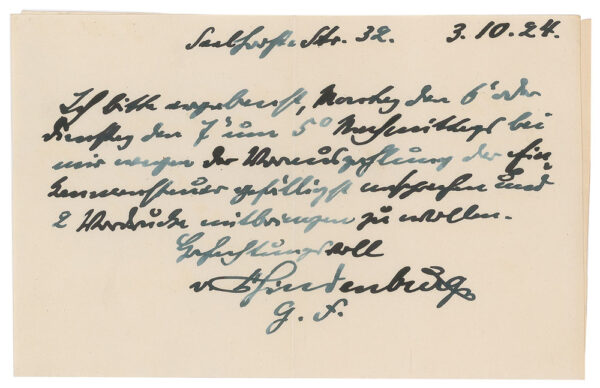 Seelhorststr. 32. 3.10.24.
Ich bitte ergebenst, Montag den 6' oder
Dienstag den 7' um 5° Nachmittags bei
mir wegen der Vorauszahlung der Ein-
kommensteuer gefälligst vorsprechen und
2 Vordrucke mitbringen zu wollen.
Hochachtungsvoll
v. Hindenburg
G. F.